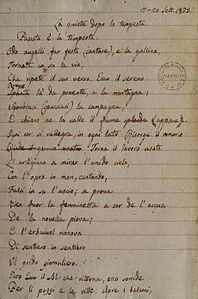 17-20 Sett. 1829.
La quiete dopo la tempesta.
Passata è la tempesta:
Odo augelli far festa (cantare), e la gallina,
Tornata in su la via,
Che ripete il suo verso. Ecco il sereno
Rompe là da ponente, a la montagna;
Sgombrasi la campagna,
E chiaro ne la valle il fiume appare.
Ogni cor si rallegra, in ogni lato Risorge il romorio
Torna il lavoro usato.
L'artigiano a mirar l'umido cielo,
Con l'opra in man, cantando,
Fassi in su l'uscio; a prova
Vien fuor la femminetta a cor de l'acqua
De la novella piova;
E l'erbaiuol rinnova
Di sentiero in sentiero
Il grido giornaliero.
Ecco il Sol che ritorna, ecco sorride
Per li poggi e le ville. Apre i balconi,